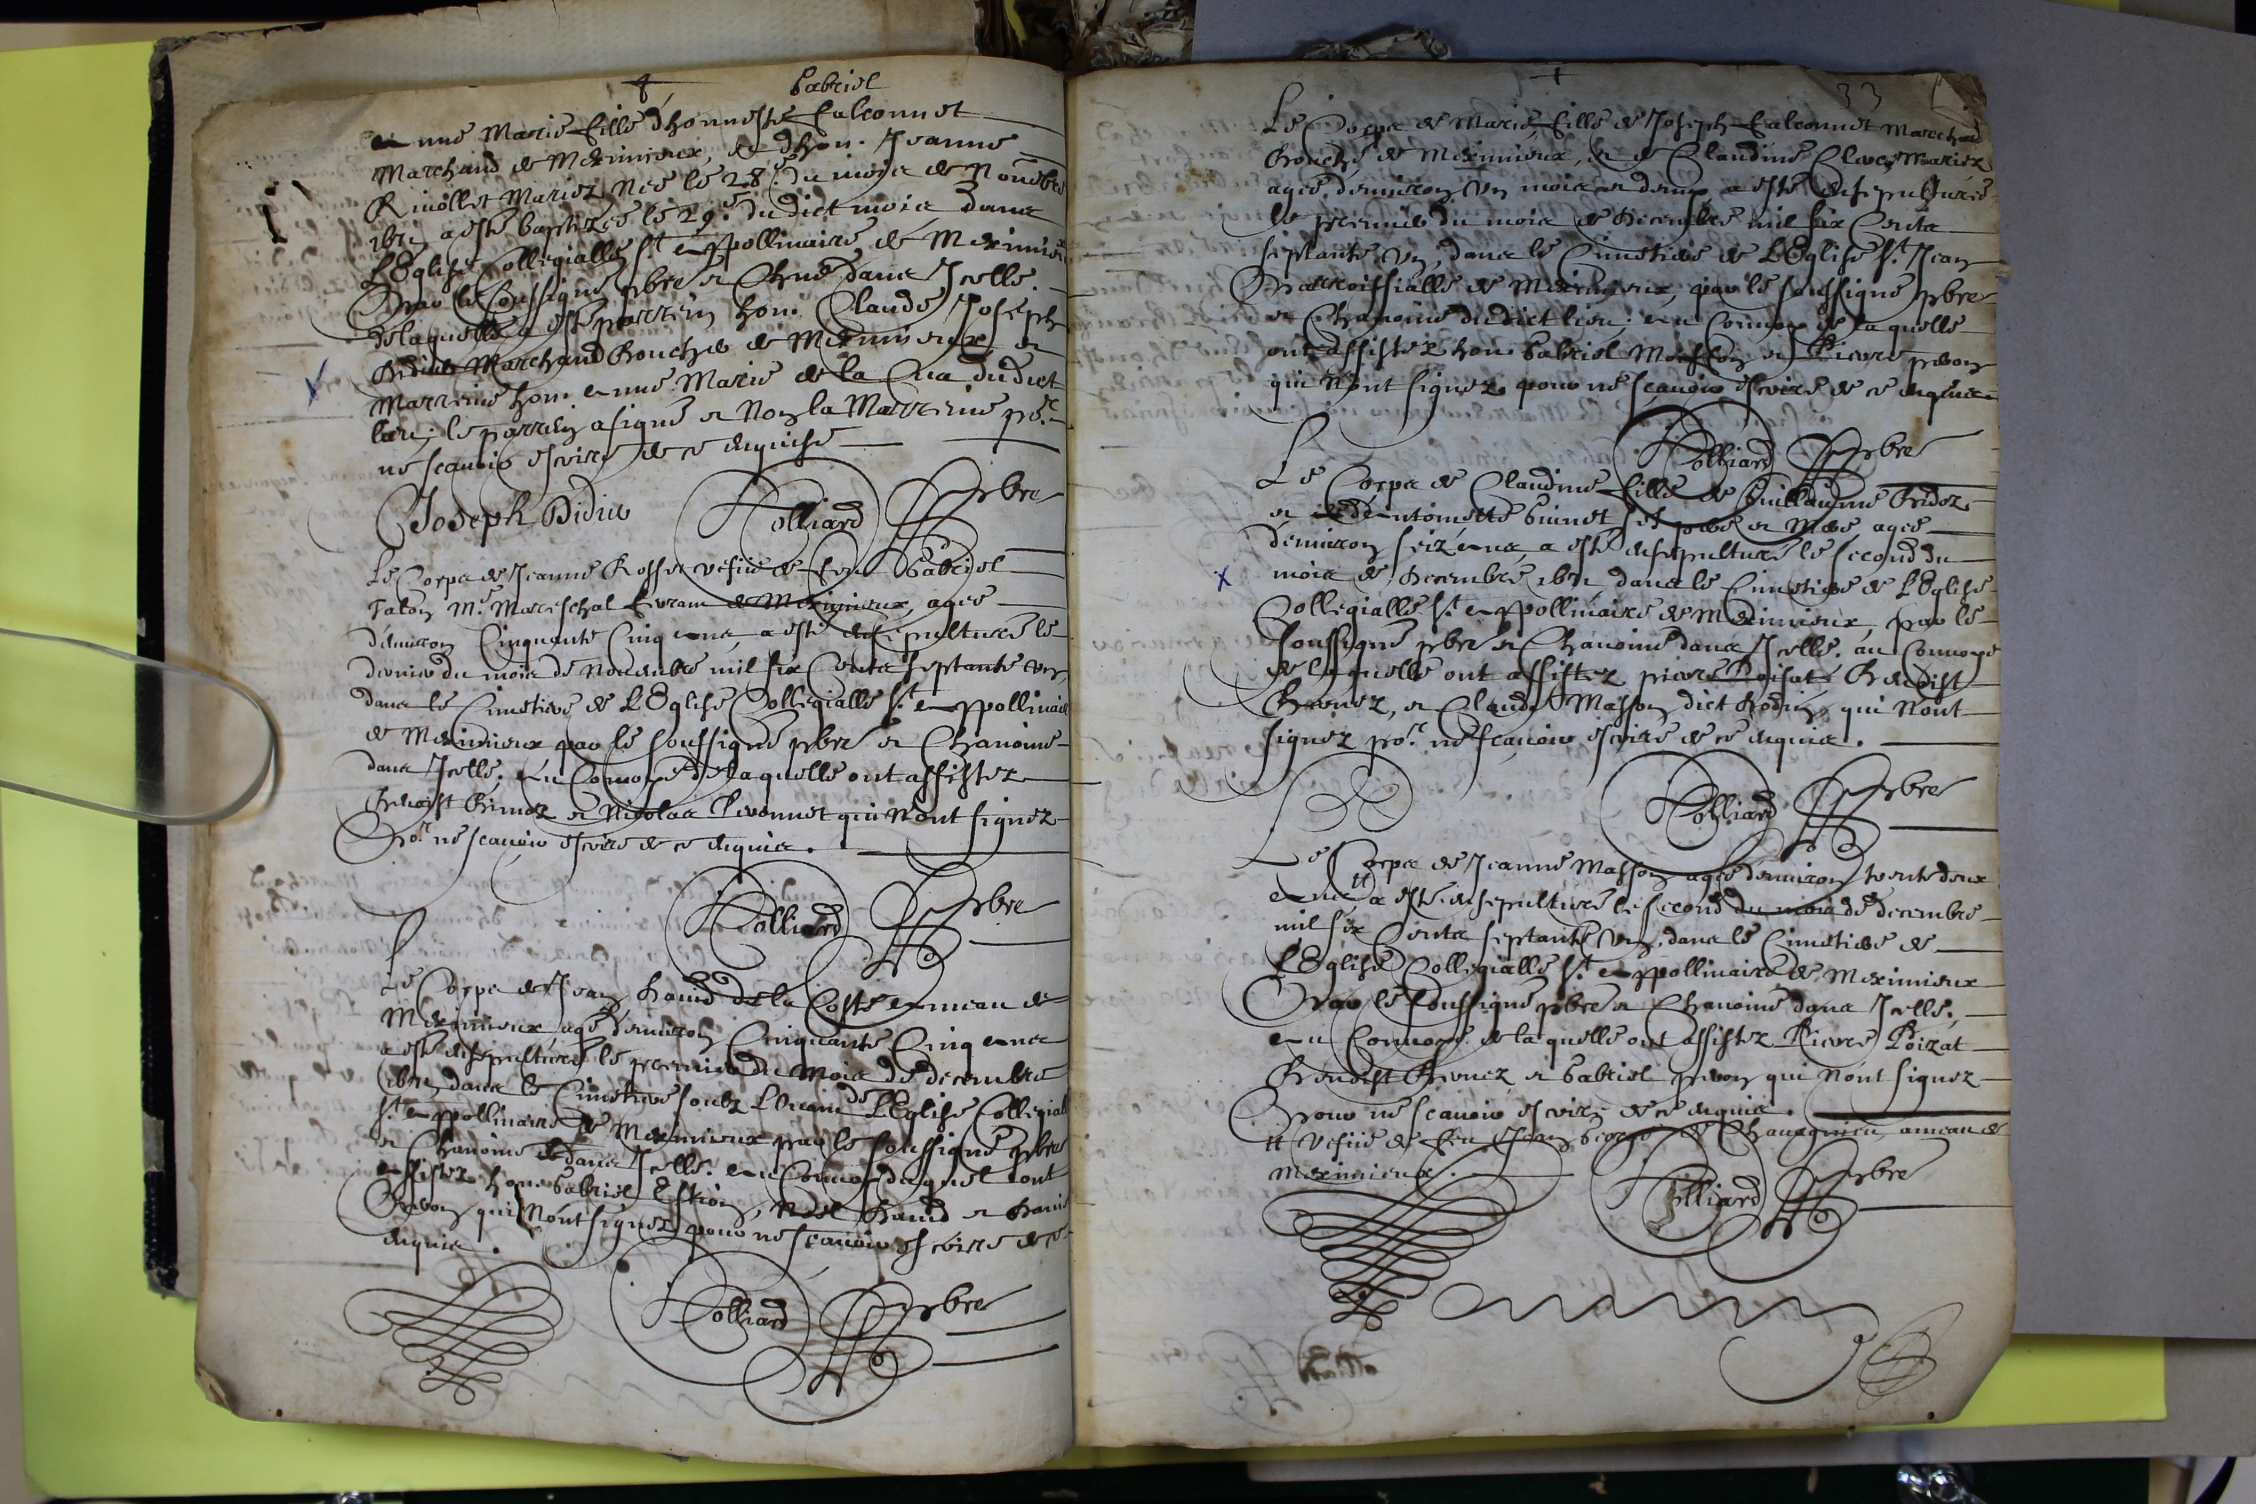 Gabriel
Anne Marie fille d'honneste Falconnet
Marchand de Meximieux, et d'hon. Jeanne
Rivollet Mariez Nee le 28e du mois de Novebre
1671 a esté baptizéé le 29e dudict mois dans
L'Eglise Collegialle St Appollinaire de Meximieu
Par le soussigné pbre et Chne dans Icelle.
de laquelle a esté parrein hon. Claude Joseph
Bidier Marchand Boucher de Meximieux et
Marreine hon. Anne Marie de la Cua dudict
lieu; le parrein a signé et Non la Marreine por
ne scavoir escrire de ce Enquise
Joseph Bidier Colliard pbre
Le Corps de Jeanne Rosset vefue de feu Gabriel
Mareschal de Meximieux, agee
d'environ Cinquante Cinq Ans a esté Ensepulturé le
dernier du mois de Novembre mil six Cents septante un
dans le Cimetiere de L'Eglise Collegialle St Appollinaire
de Meximieux par le soussigné pbre et Chanoine
dans Icelle. Au Convoy de laquelle ont assistez
Benoist Brunez et Nicolas Pivonnet qui N'ont signez
Por ne scavoir escrire de ce Enquis.
Colliard pbre
Le Corps de Jean de la Coste Ameau de
Meximieux agé d'environ Cinquante Cinq Ans
a esté Ensepulturé le premier du Mois de decembre
1671 dans le Cimetiere soubz de L'Eglise Collegiall
St Appollinaire de Meximieux par le soussigné pbre
et Chanoine dans Icelle. Au Convoy duquel ont
Assistez hon. Gabriel Noel et
qui N'ont signez pour ne scavoir escrire de ce
Enquis.
Colliard pbre
33
Le Corps de Marie, fille de Joseph Falconnet Marchand
Boucher de Meximieux, et de Claudine Mariez
agee d'environ Un mois et demy a esté Ensepulturéé
le premier du mois de Decembre mil six Cents
septante Un, dans le Cimetiere de L'Eglise St Jean
Parroissialle de Meximieux, par le soussigné pbre
et Chanoine dudict lieu; Au Convoy de laquelle
ont Assistez hon. Gabriel Masson et Pierre prevon
qui N'ont signez pour ne scavoir escrire de ce Enquis
Colliard pbre
Le Corps de Claudine fille de Guillaume Bidoz
et d'Antoinette Guinet ses pere et Mere, agee
d'environ seize Ans, a esté Ensepulturé le second du
mois de Decembre 1671 dans le Cimetiere de L'Eglise
Collegialle St Appollinaire de Meximieux, par le
soussigné pbre et Chanoine dans Icelle. au Convoye
de laquelle ont assistez pierre Poisat Benoist
Brunez, et Claude Masson dict Bodin qui N'ont
signez por ne scavoir escrire de ce Enquis.
Colliard pbre
Le Corps de Jeanne Masson agee d'environ trente deux
Ans tt a esté Ensepulturé le second du mois de decembre
mil six Cents septante Un, dans le Cimetiere de
L'Eglise Collegialle St Appollinaire de Meximieux
Par le soussigné pbre et Chanoine dans Icelle.
Au Convoye de laquelle ont assistez Pierre Poizat
Benoist Brunez et Gabriel prevon qui N'ont signez
Pour ne scavoir escrire de ce Enquis.
tt Vefue de feu Jean George de Chavagnieu ameau de
Meximieux.
Colliard pbre